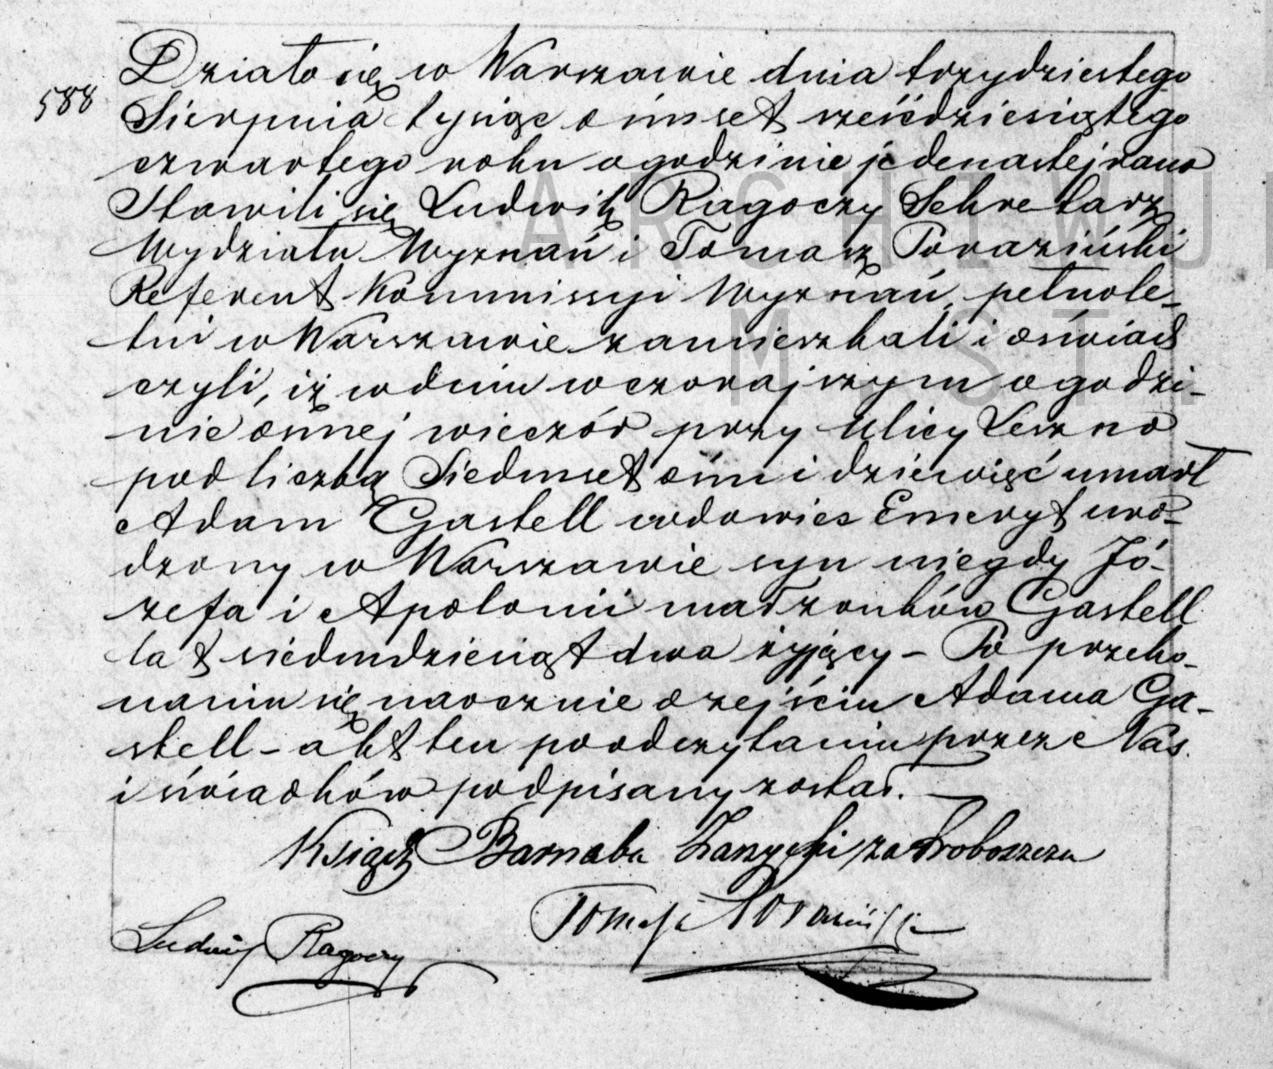 588
Działo się w Warszawie dnia trzydziestego
Sierpnia tysiąc ośmset sześćdziesiątego
czwartego roku o godzinie jedenastej rano
Stawili się Ludwik Ragoczy Sekretarz
Wydziału Wyznań i Tomasz Poraziński
Referent Kommissyi Wyznań, pełnole-
tni w Warszawie zamieszkali i oświad
czyli, iż w dniu wczorajszym o godzi-
nie ósmej wieczór przy Ulicy Leszno
pod liczbą Siedmset ośm i dziewięć umarł
Adam Gastell wdowiec Emeryt uro-
dzony w Warszawie syn niegdy Jó-
zefa i Apolonii małżonków Gastell
lat siedmdziesiąt dwa żyjący – Po przeko-
naniu się naocznie o zejściu Adama Ga-
stell – akt ten po odczytaniu przez Nas
i świadków podpisany został. —
Ksiądz Barnaba za Proboszcza
Ludwik Ragoczy
Tomasz Poraziński
ARCHIWU
M ST.